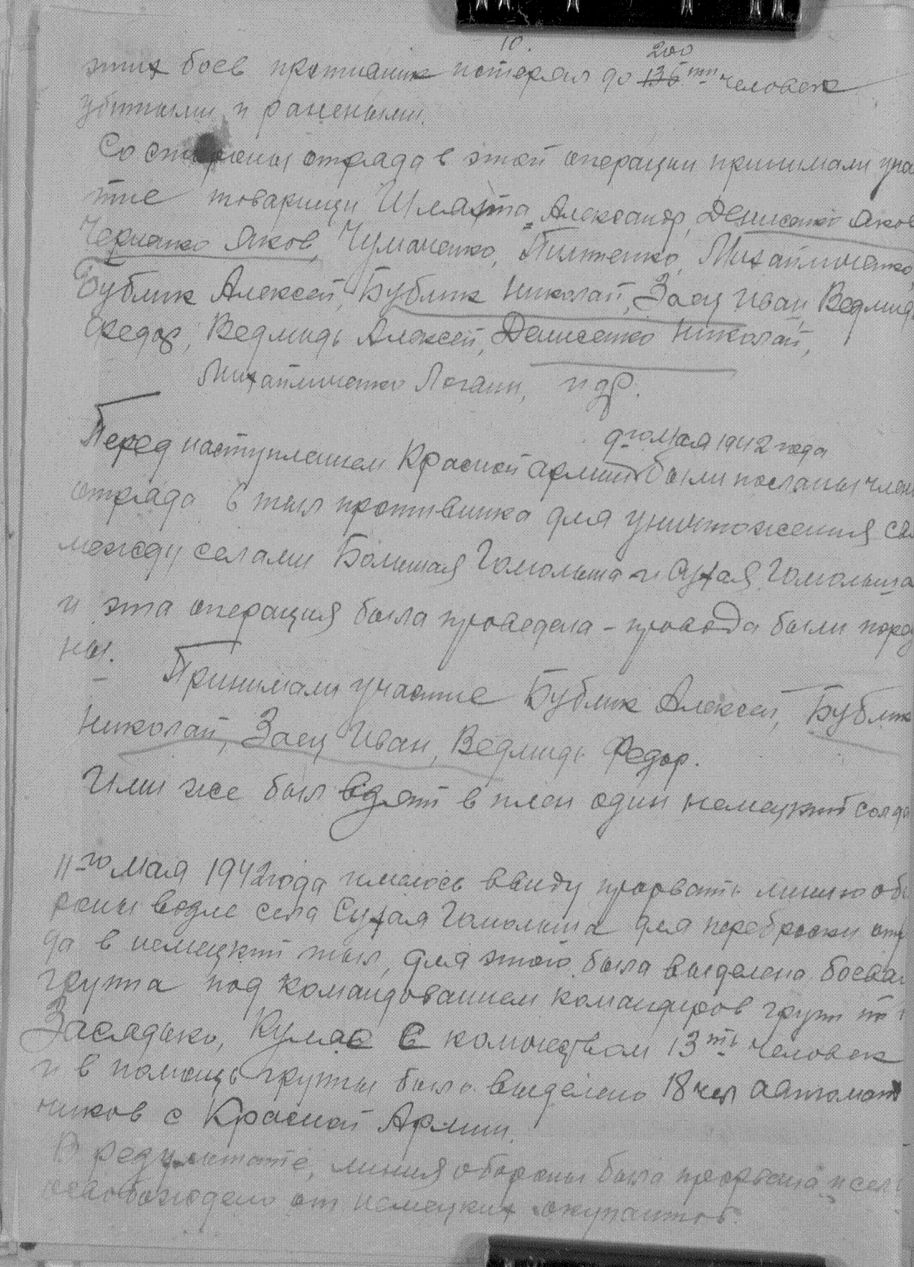 10.
этих боев противник потерял до 200 135ти человек
убитыми и ранеными.
Со стороны отряда в этой операции принимали уча
тие товарищи Шляхта Александр, Денисенко Яков
Черненко Яков, Чумаченко, Пилтенко, Михайличенко,
Бублик Алексей, Бублик Николай, Заец Иван, Ведмидь
Федор, Ведмидь Алексей, Денисенко Николай,
Михайличенко и др.
9го мая 1942 года
Перед наступлением Красной армии были посланы член
отряда в тыл противника для уничтожения свя
между селами Большая Гомольша и Сухая Гомольша
и эта операция была проведена – провода были порва
ны.
Принимали участие Бублик Алексей, Бублик
Николай, Заец Иван, Ведмидь Федор.
Ими же был взят в плен один немецкий солда
11-го мая 1942 года имелось ввиду прорвать линию обо
роны возле села Сухая Гомольша для переброски отря
да в немецкий тыл, для этого была выделена боевая
группа под командованием командиров групп
Засядько, Кулак в количеством 13ть человек
и в помощь группы было выделено 18 чел автомат
чиков с Красной Армии.
В результате, линия обороны была прорвана и село
освобождено от немецких окупантов.